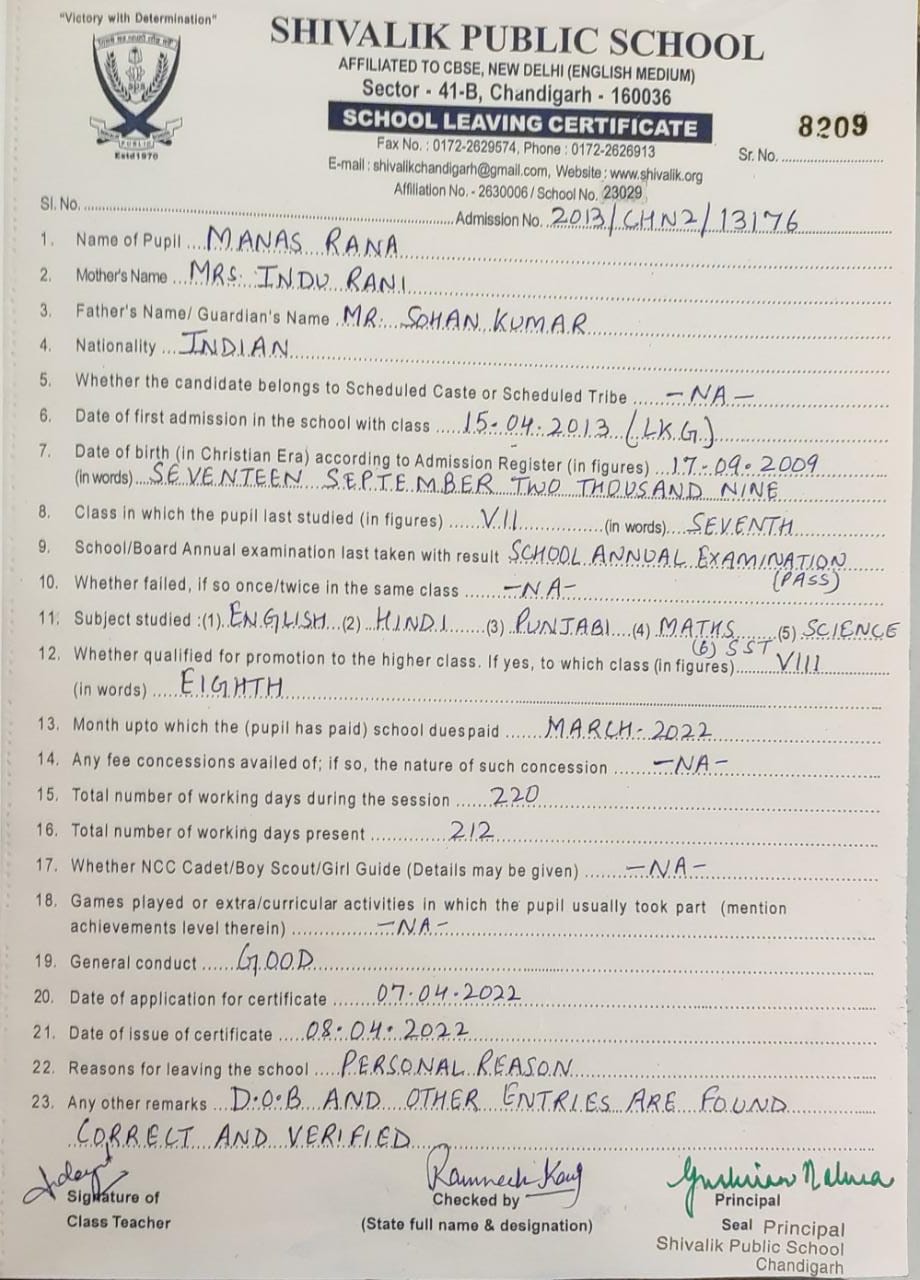 "Victory with Determination"
SHIVALIK PUBLIC SCHOOL
AFFILIATED TO CBSE, NEW DELHI (ENGLISH MEDIUM)
Sector - 41-B, Chandigarh - 160036
SCHOOL LEAVING CERTIFICATE
8209
Fax No. : 0172-2629574, Phone : 0172-2626913
Sr. No.
E-mail : shivalikchandigarh@gmail.com, Website : www.shivalik.org
Affiliation No. - 2630006 / School No. 23029
PUBLIC
Estd 1970
Sl. No. Admission No. 2013/CHN2/13176
1. Name of Pupil MANAS RANA
2. Mother's Name MRS. INDU RANI
3. Father's Name/ Guardian's Name MR. SOHAN KUMAR
4. Nationality INDIAN
5. Whether the candidate belongs to Scheduled Caste or Scheduled Tribe -NA-
6. Date of first admission in the school with class 15-04-2013 (LK.G.)
7. Date of birth (in Christian Era) according to Admission Register (in figures) 17-09-2009
(in words) SEVENTEEN SEPTEMBER TWO THOUSAND NINE
8. Class in which the pupil last studied (in figures) VII (in words) SEVENTH
9. School/Board Annual examination last taken with result SCHOOL ANNUAL EXAMINATION
(PASS)
10. Whether failed, if so once/twice in the same class -NA-
11. Subject studied :(1) ENGLISH (2) HINDI (3) PUNJABI (4) MATHS (5) SCIENCE
(6) SST
12. Whether qualified for promotion to the higher class. If yes, to which class (in figures) VIII
(in words) EIGHTH
13. Month upto which the (pupil has paid) school duespaid MARCH-2022
14. Any fee concessions availed of; if so, the nature of such concession -NA-
15. Total number of working days during the session 220
16. Total number of working days present 212
17. Whether NCC Cadet/Boy Scout/Girl Guide (Details may be given) -NA-
18. Games played or extra/curricular activities in which the pupil usually took part (mention
achievements level therein) -NA-
19. General conduct GOOD
20. Date of application for certificate 07.04.2022
21. Date of issue of certificate 08.04.2022
22. Reasons for leaving the school PERSONAL REASON
23. Any other remarks D.O.B AND OTHER ENTRIES ARE FOUND
CORRECT AND VERIFIED
Signature of
Class Teacher
Checked by
(State full name & designation)
Principal
Seal Principal
Shivalik Public School
Chandigarh